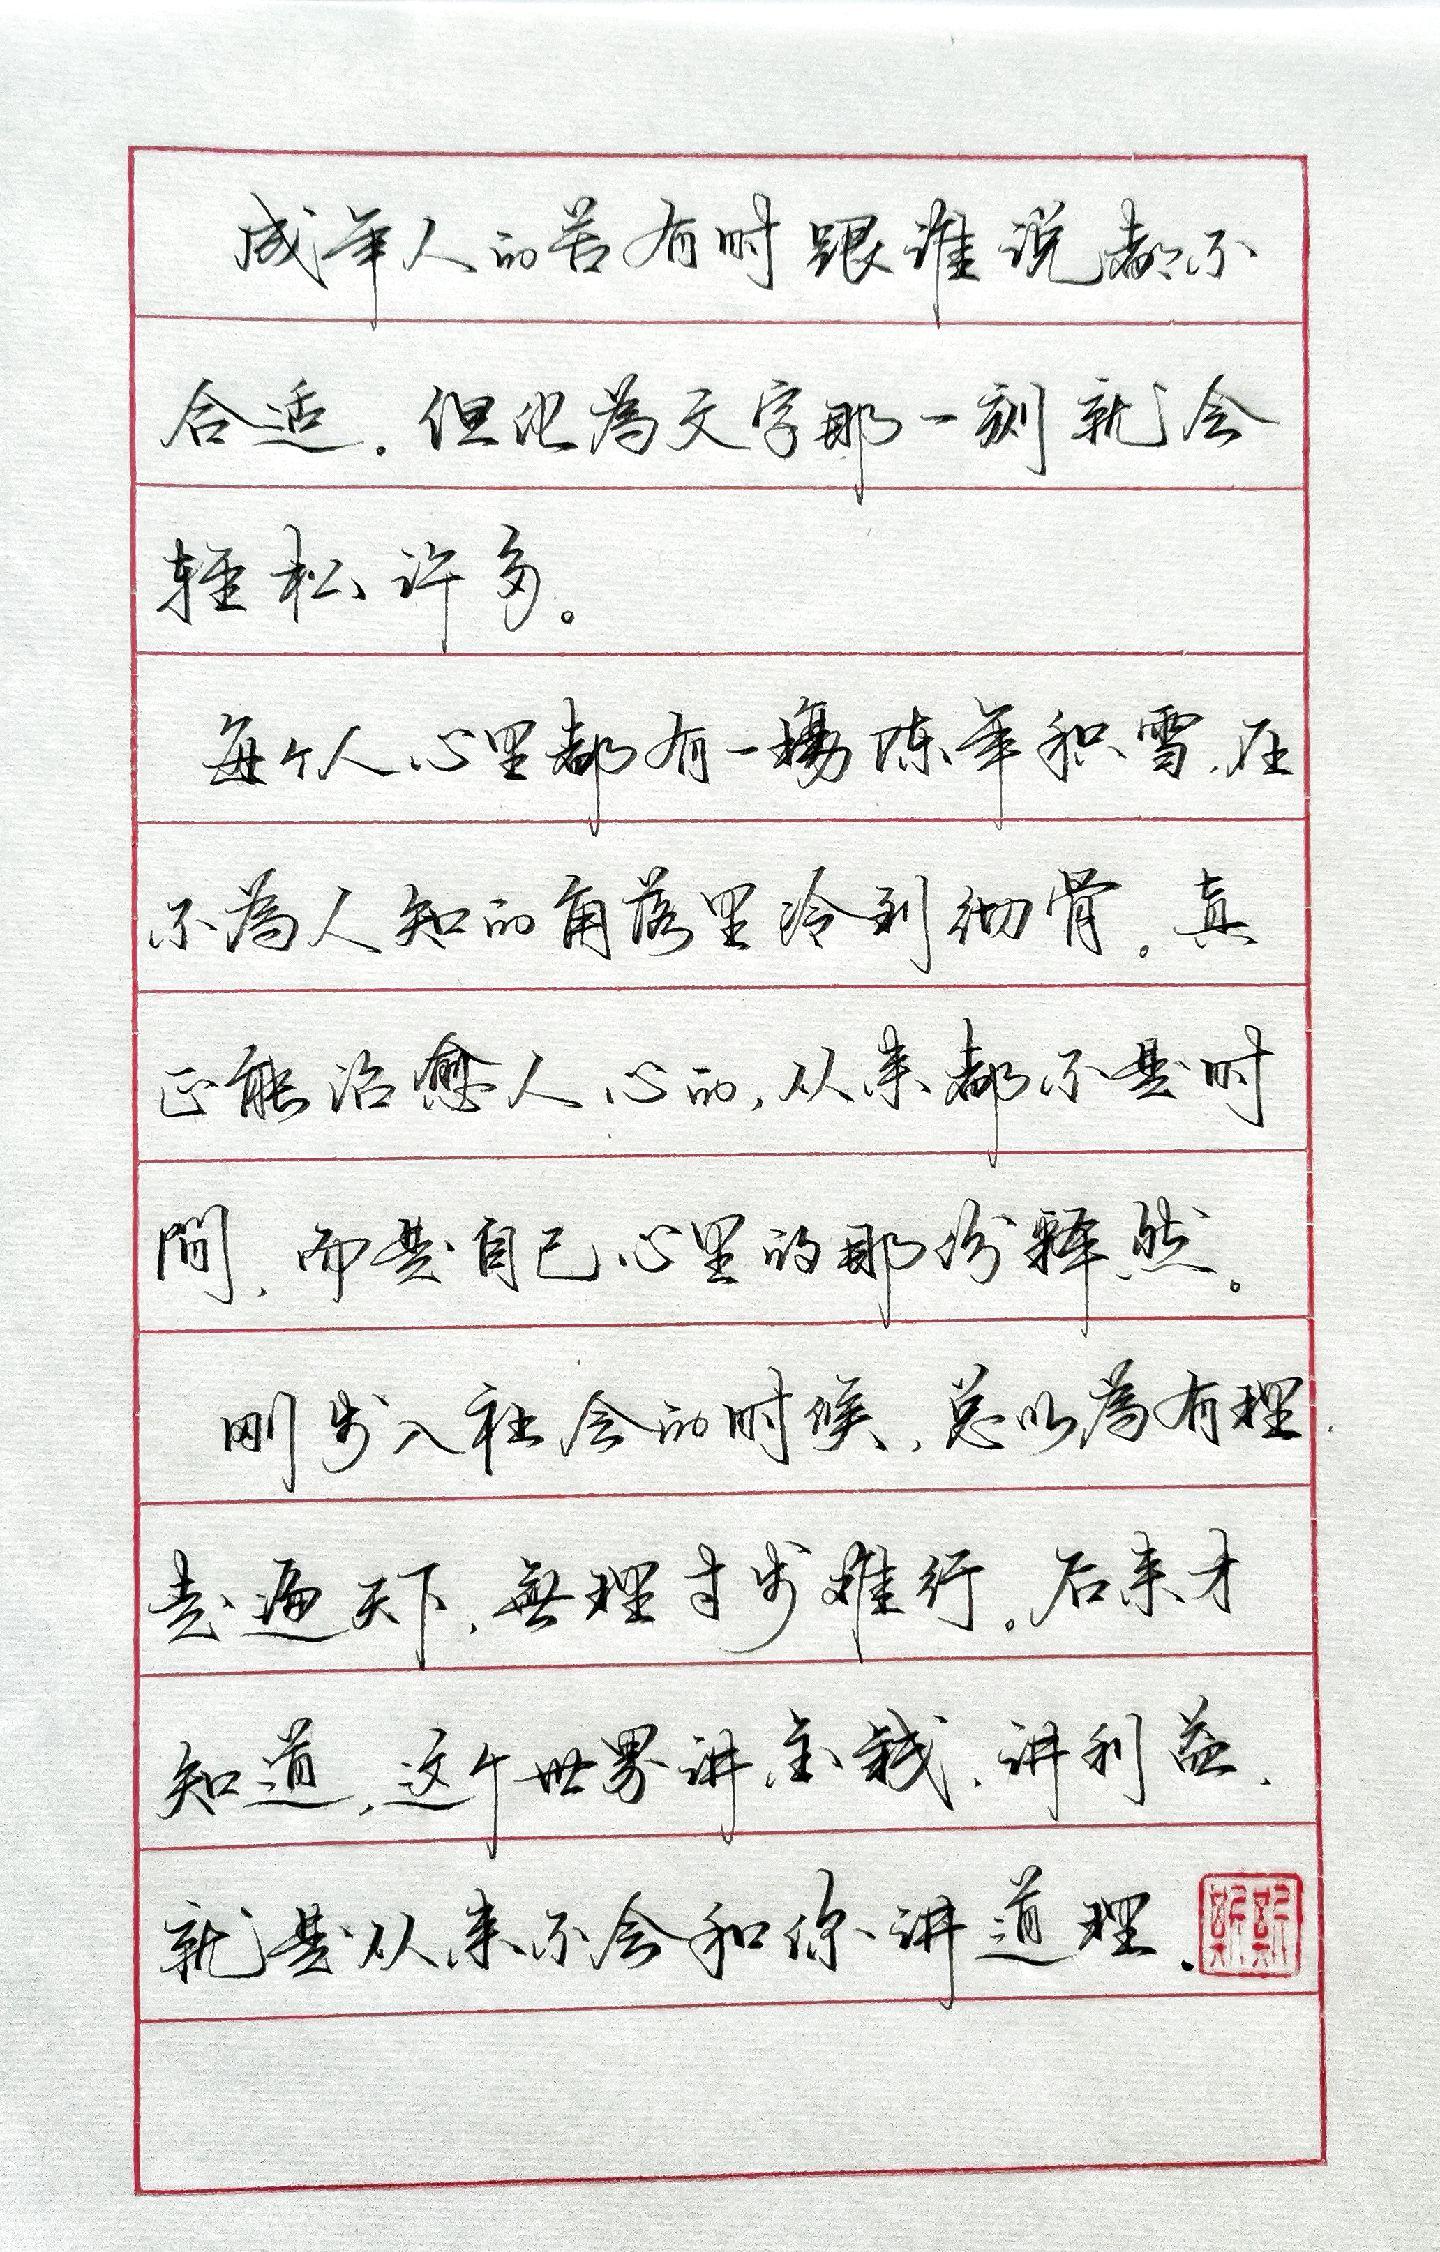 成年人的苦有时跟谁说都不
合适。但化為文字那一刻就会
轻松许多。
每个人心里都有一場陈年积雪,在
不為人知的角落里冷到彻骨。真
正能治愈人心的,从来都不是时
間,而是自己心里的那份释然。
刚步入社会的时候,总以為有理
走遍天下,無理寸步难行。后来才
知道,这个世界讲金钱,讲利益,
就是从来不会和你讲道理。